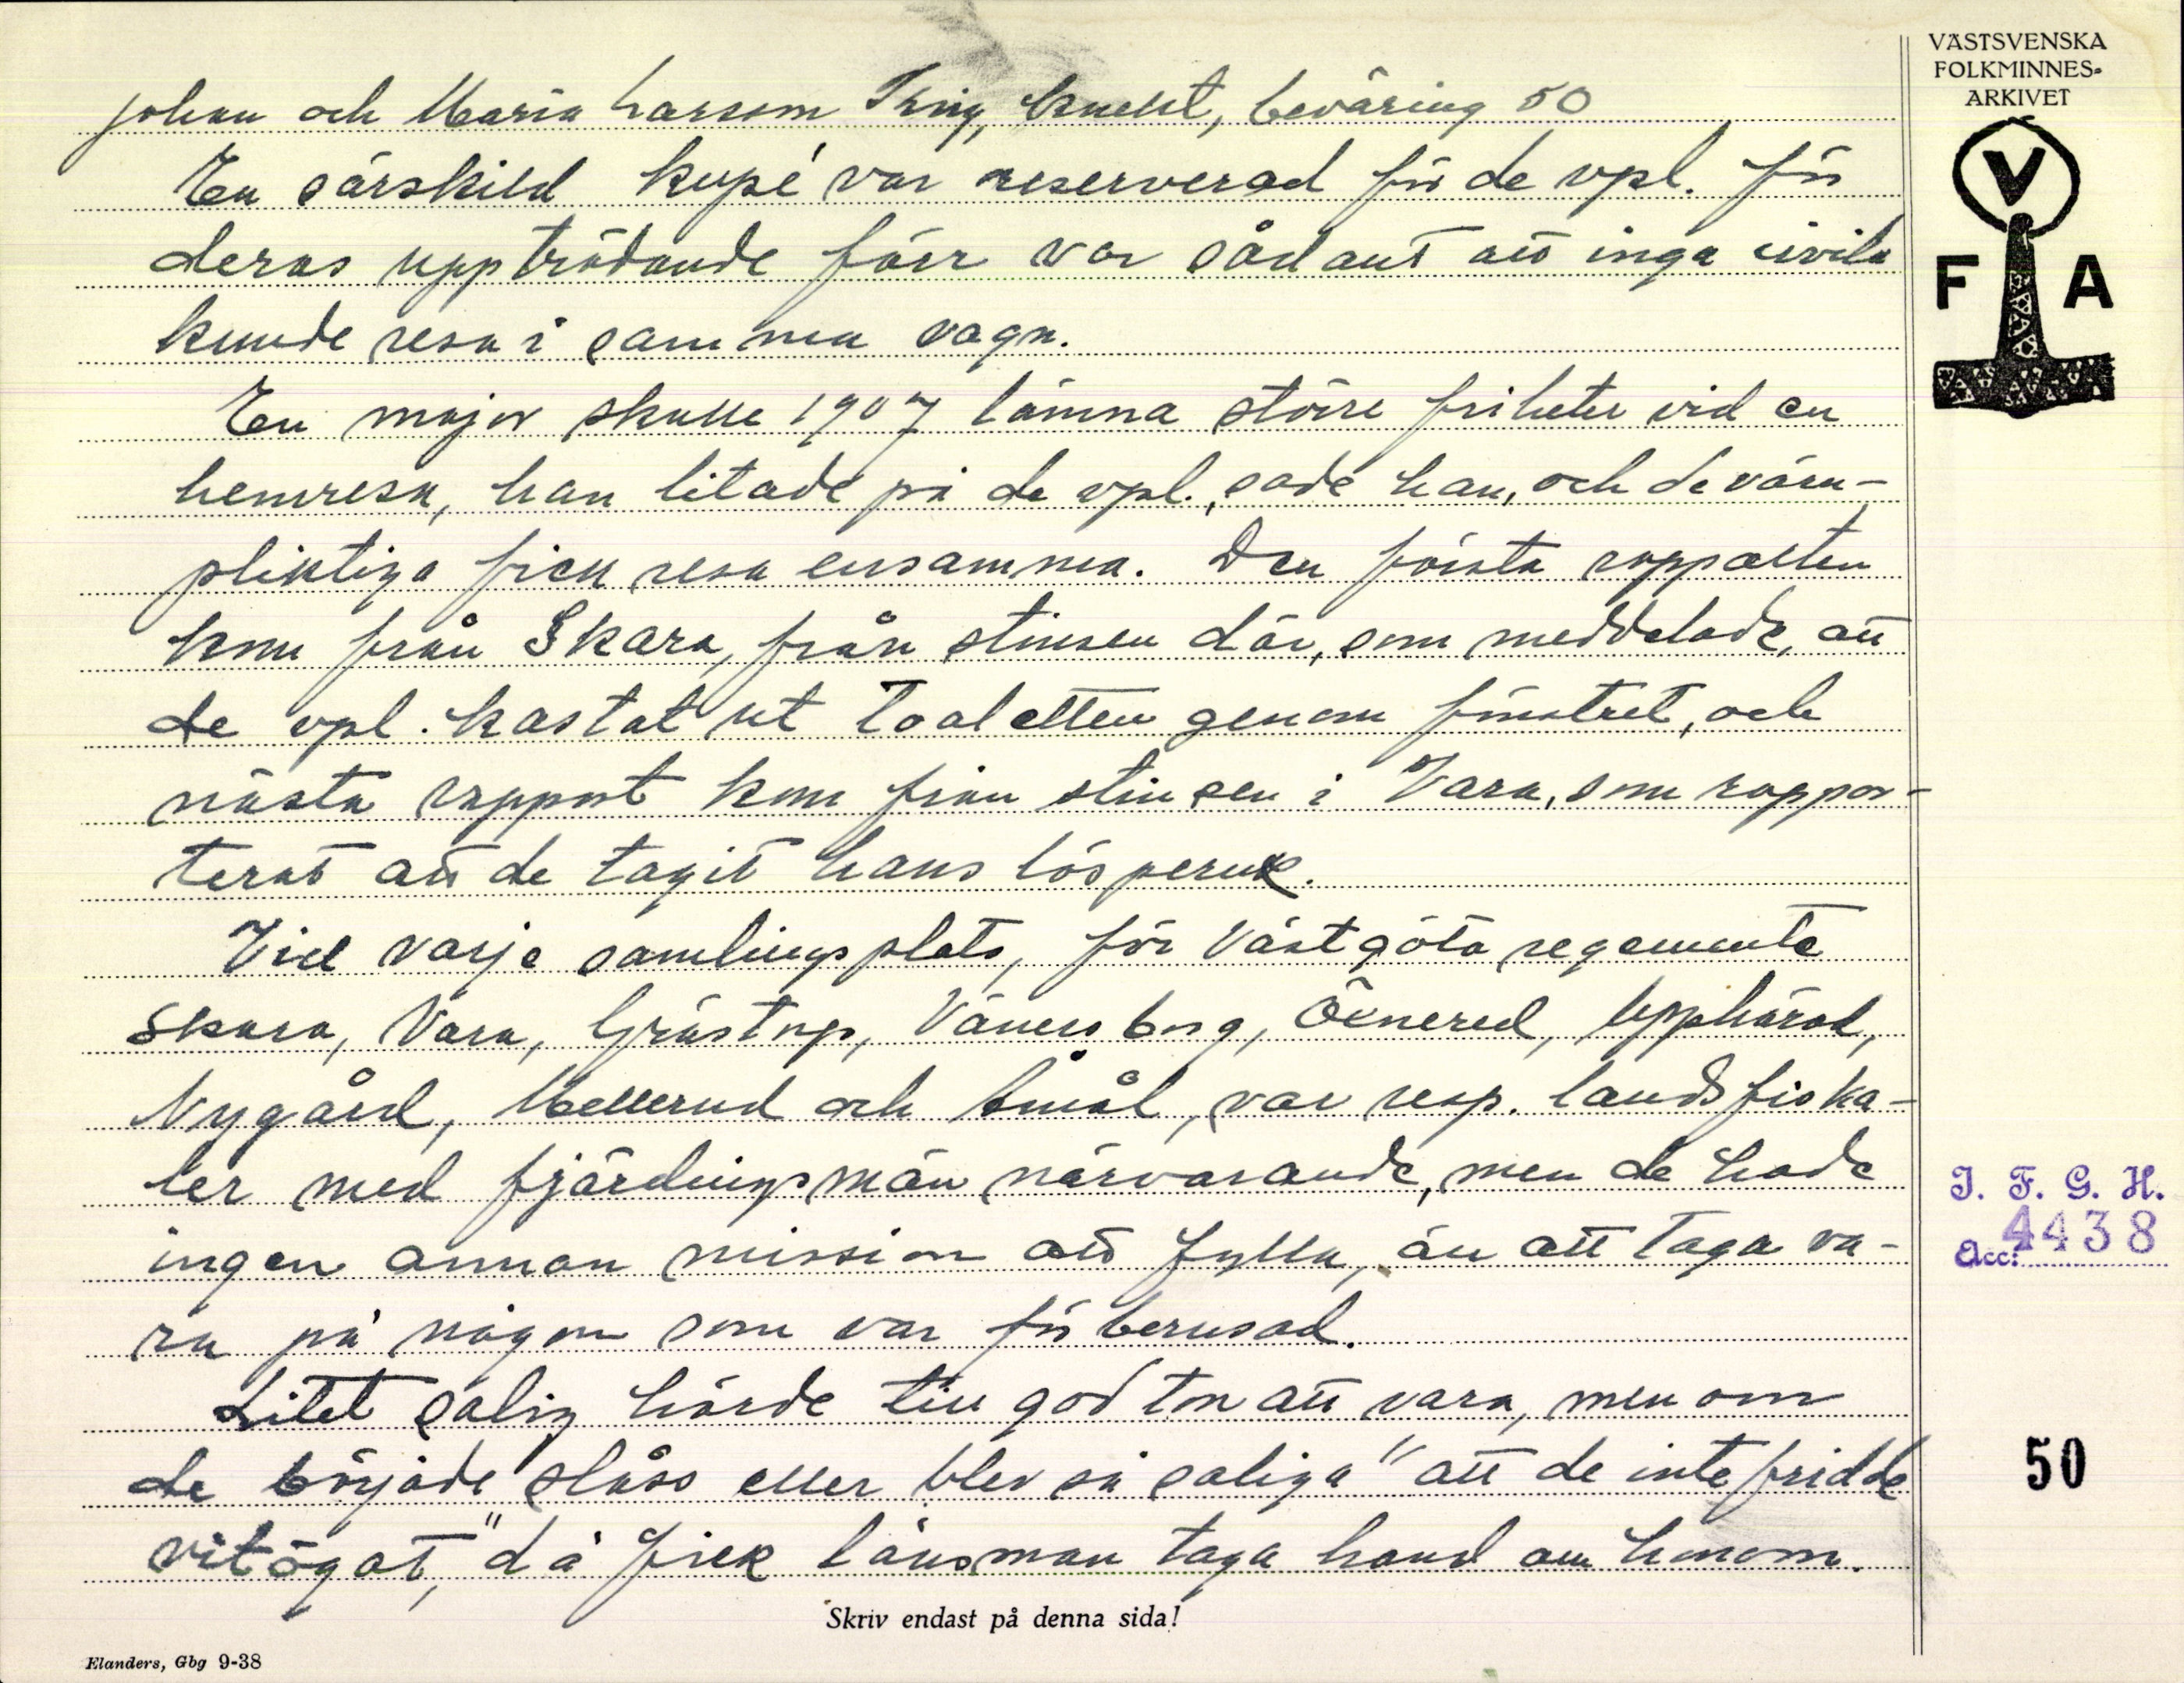 Johan och Maria Larsson Krig, knekt, beväring 50
En särskild kupé var reserverad för de vpl. för
deras uppträdande förr var sådant att inga civila
kunde resa i samma vagn.
En major skulle 1907 lämna större friheter vid en
hemresa, han litade på de vpl., sade han, och de värn-
pliktiga fick resa ensamma. Den första rapporten
kom från Skara, från stinsen där, som meddelade, att
de vpl. kastat ut toaletten genom fönstret, och
nästa rapport kom från stinsen i Vara, som rappor-
terat att de tagit hans lösperuk.
Vid varje samlingsplats, för Västgöta regemente
Skara, Vara, Grästorp, Vänersborg, Öxnered, Upphärad,
Nygård, Mellerud och Åmål, var resp. landsfiska-
ler med fjärdingsmän närvarande, men de hade
ingen annan mission att fylla, än att taga va-
ra på någon som var för berusad.
Litet salig hörde till god ton att vara, men om
de började slåss eller blev så saliga "att de inte fridde
vitögat," då fick länsman taga hand om honom.
Skriv endast på denna sida!
Elanders, Gbg 9-38
VÄSTSVENSKA
FOLKMINNES-
ARKIVET
V
F A
I. F. G. H.
Acc: 4438
50